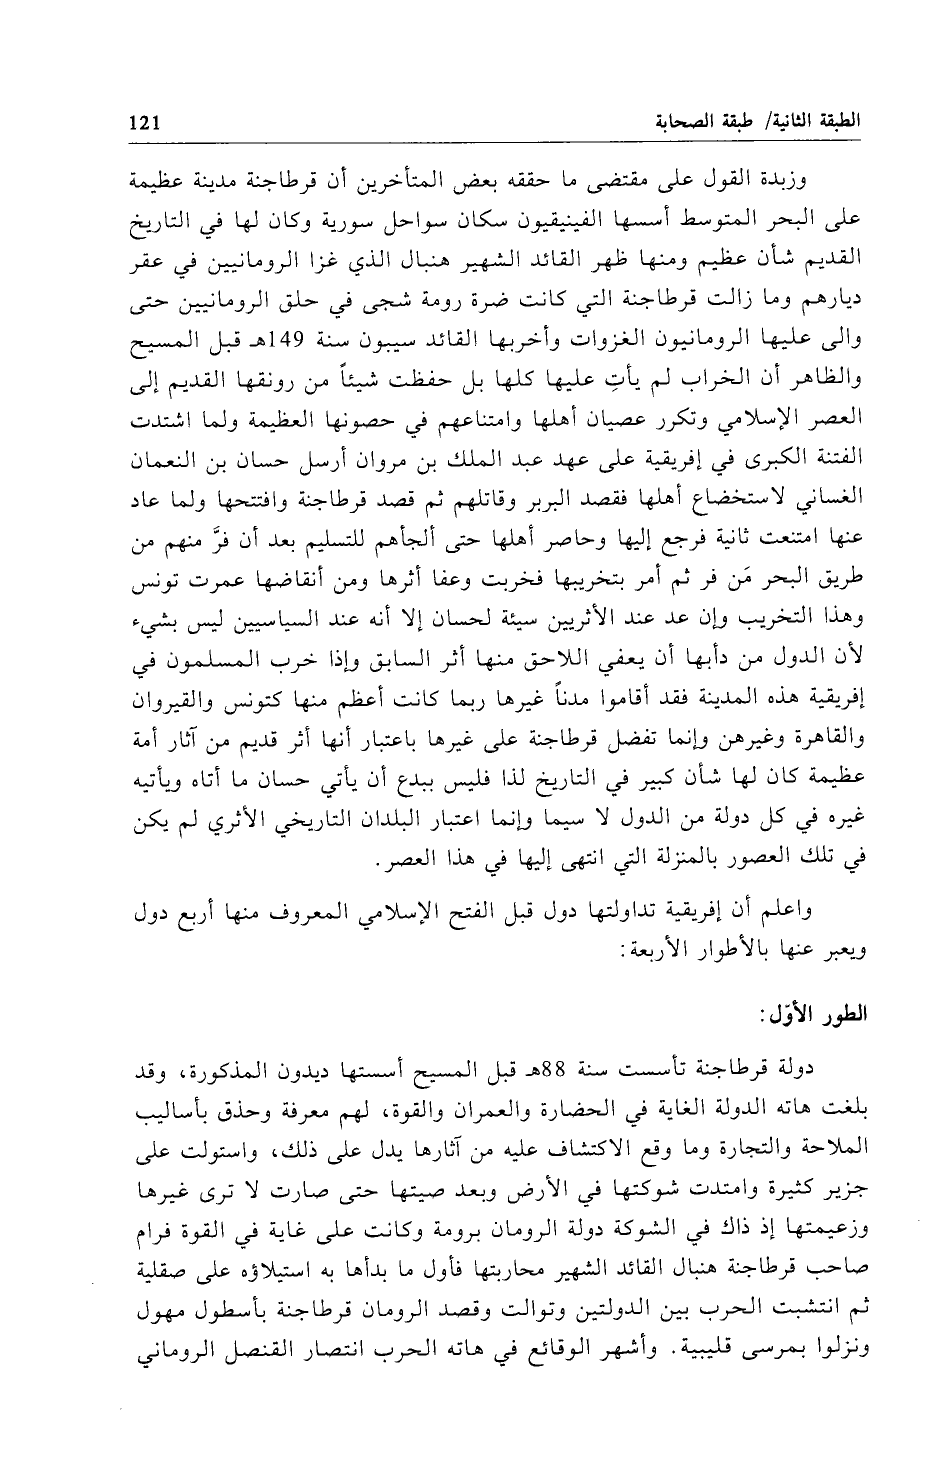 الطبقة الثانية/ طبقة الصحابة 121
وزبدة القول على مقتضى ما حققه بعض المتأخرين أن قرطاجنة مدينة عظيمة
على البحر المتوسط أسسها الفينيقيون سكان سواحل سورية وكان لها في التاريخ
القديم شأن عظيم ومنها ظهر القائد الشهير هنبال الذي غزا الرومانيين في عقر
ديارهم وما زالت قرطاجنة التي كانت ضرة رومة شجى في حلق الرومانيين حتى
والى عليها الرومانيون الغزوات وأخربها القائد سيبون سنة 149هـ قبل المسيح
والظاهر أن الخراب لم يأتِ عليها كلها بل حفظت شيئاً من رونقها القديم إلى
العصر الإسلامي وتكرر عصيان أهلها وامتناعهم في حصونها العظيمة ولما اشتدت
الفتنة الكبرى في إفريقية على عهد عبد الملك بن مروان أرسل حسان بن النعمان
الغساني لاستخضاع أهلها فقصد البربر وقاتلهم ثم قصد قرطاجنة وافتتحها ولما عاد
عنها امتنعت ثانية فرجع إليها وحاصر أهلها حتى ألجأهم للتسليم بعد أن فرَّ منهم من
طريق البحر مَن فر ثم أمر بتخريبها فخربت وعفا أثرها ومن أنقاضها عمرت تونس
وهذا التخريب وإن عد عند الأثريين سيئة لحسان إلا أنه عند السياسيين ليس بشيء
لأن الدول من دأبها أن يعفي اللاحق منها أثر السابق وإذا خرب المسلمون في
إفريقية هذه المدينة فقد أقاموا مدناً غيرها ربما كانت أعظم منها كتونس والقيروان
والقاهرة وغيرهن وإنما تفضل قرطاجنة على غيرها باعتبار أنها أثر قديم من آثار أمة
عظيمة كان لها شأن كبير في التاريخ لذا فليس ببدع أن يأتي حسان ما أتاه ويأتيه
غيره في كل دولة من الدول لا سيما وإنما اعتبار البلدان التاريخي الأثري لم يكن
في تلك العصور بالمنزلة التي انتهى إليها في هذا العصر.
واعلم أن إفريقية تداولتها دول قبل الفتح الإسلامي المعروف منها أربع دول
ويعبر عنها بالأطوار الأربعة:
الطور الأوّل:
دولة قرطاجنة تأسست سنة 88هـ قبل المسيح أسستها ديدون المذكورة، وقد
بلغت هاته الدولة الغاية في الحضارة والعمران والقوة، لهم معرفة وحذق بأساليب
الملاحة والتجارة وما وقع الاكتشاف عليه من آثارها يدل على ذلك، واستولت على
جزير كثيرة وامتدت شوكتها في الأرض وبعد صيتها حتى صارت لا ترى غيرها
وزعيمتها إذ ذاك في الشوكة دولة الرومان برومة وكانت على غاية في القوة فرام
صاحب قرطاجنة هنبال القائد الشهير محاربتها فأول ما بدأها به استيلاؤه على صقلية
ثم انتشبت الحرب بين الدولتين وتوالت وقصد الرومان قرطاجنة بأسطول مهول
ونزلوا بمرسى قليبية. وأشهر الوقائع في هاته الحرب انتصار القنصل الروماني